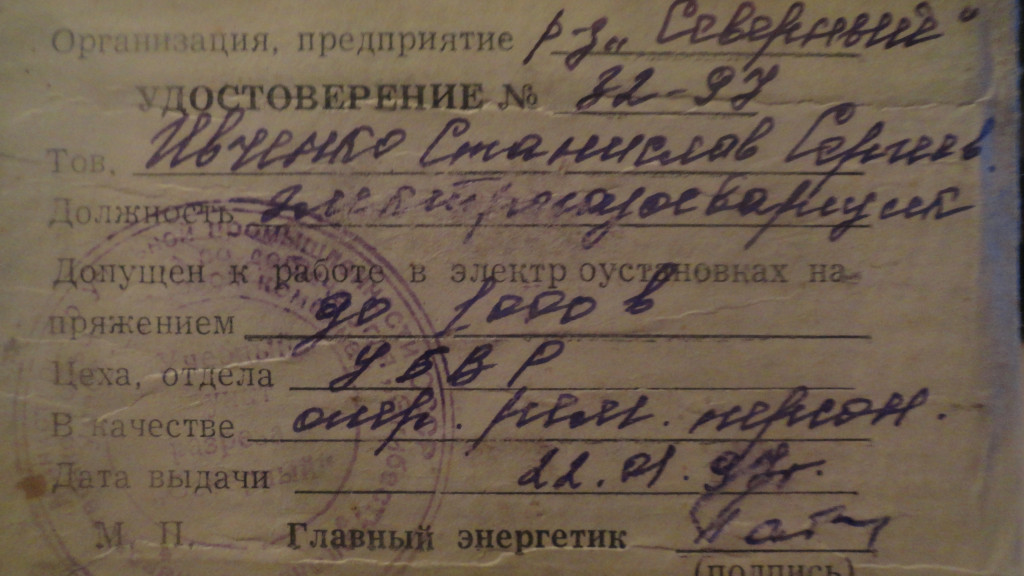 Организация, предприятие р-з „Северный"
УДОСТОВЕРЕНИЕ № 32-97
Тов. Ивченко Станислав Сергеев.
Должность электрогазосварщик
Допущен к работе в электроустановках на-
пряжением до 1000 в
Цеха, отдела УБВР
В качестве опер. рем. персон.
Дата выдачи 22.01.97г.
М. П. Главный энергетик
(подпись)